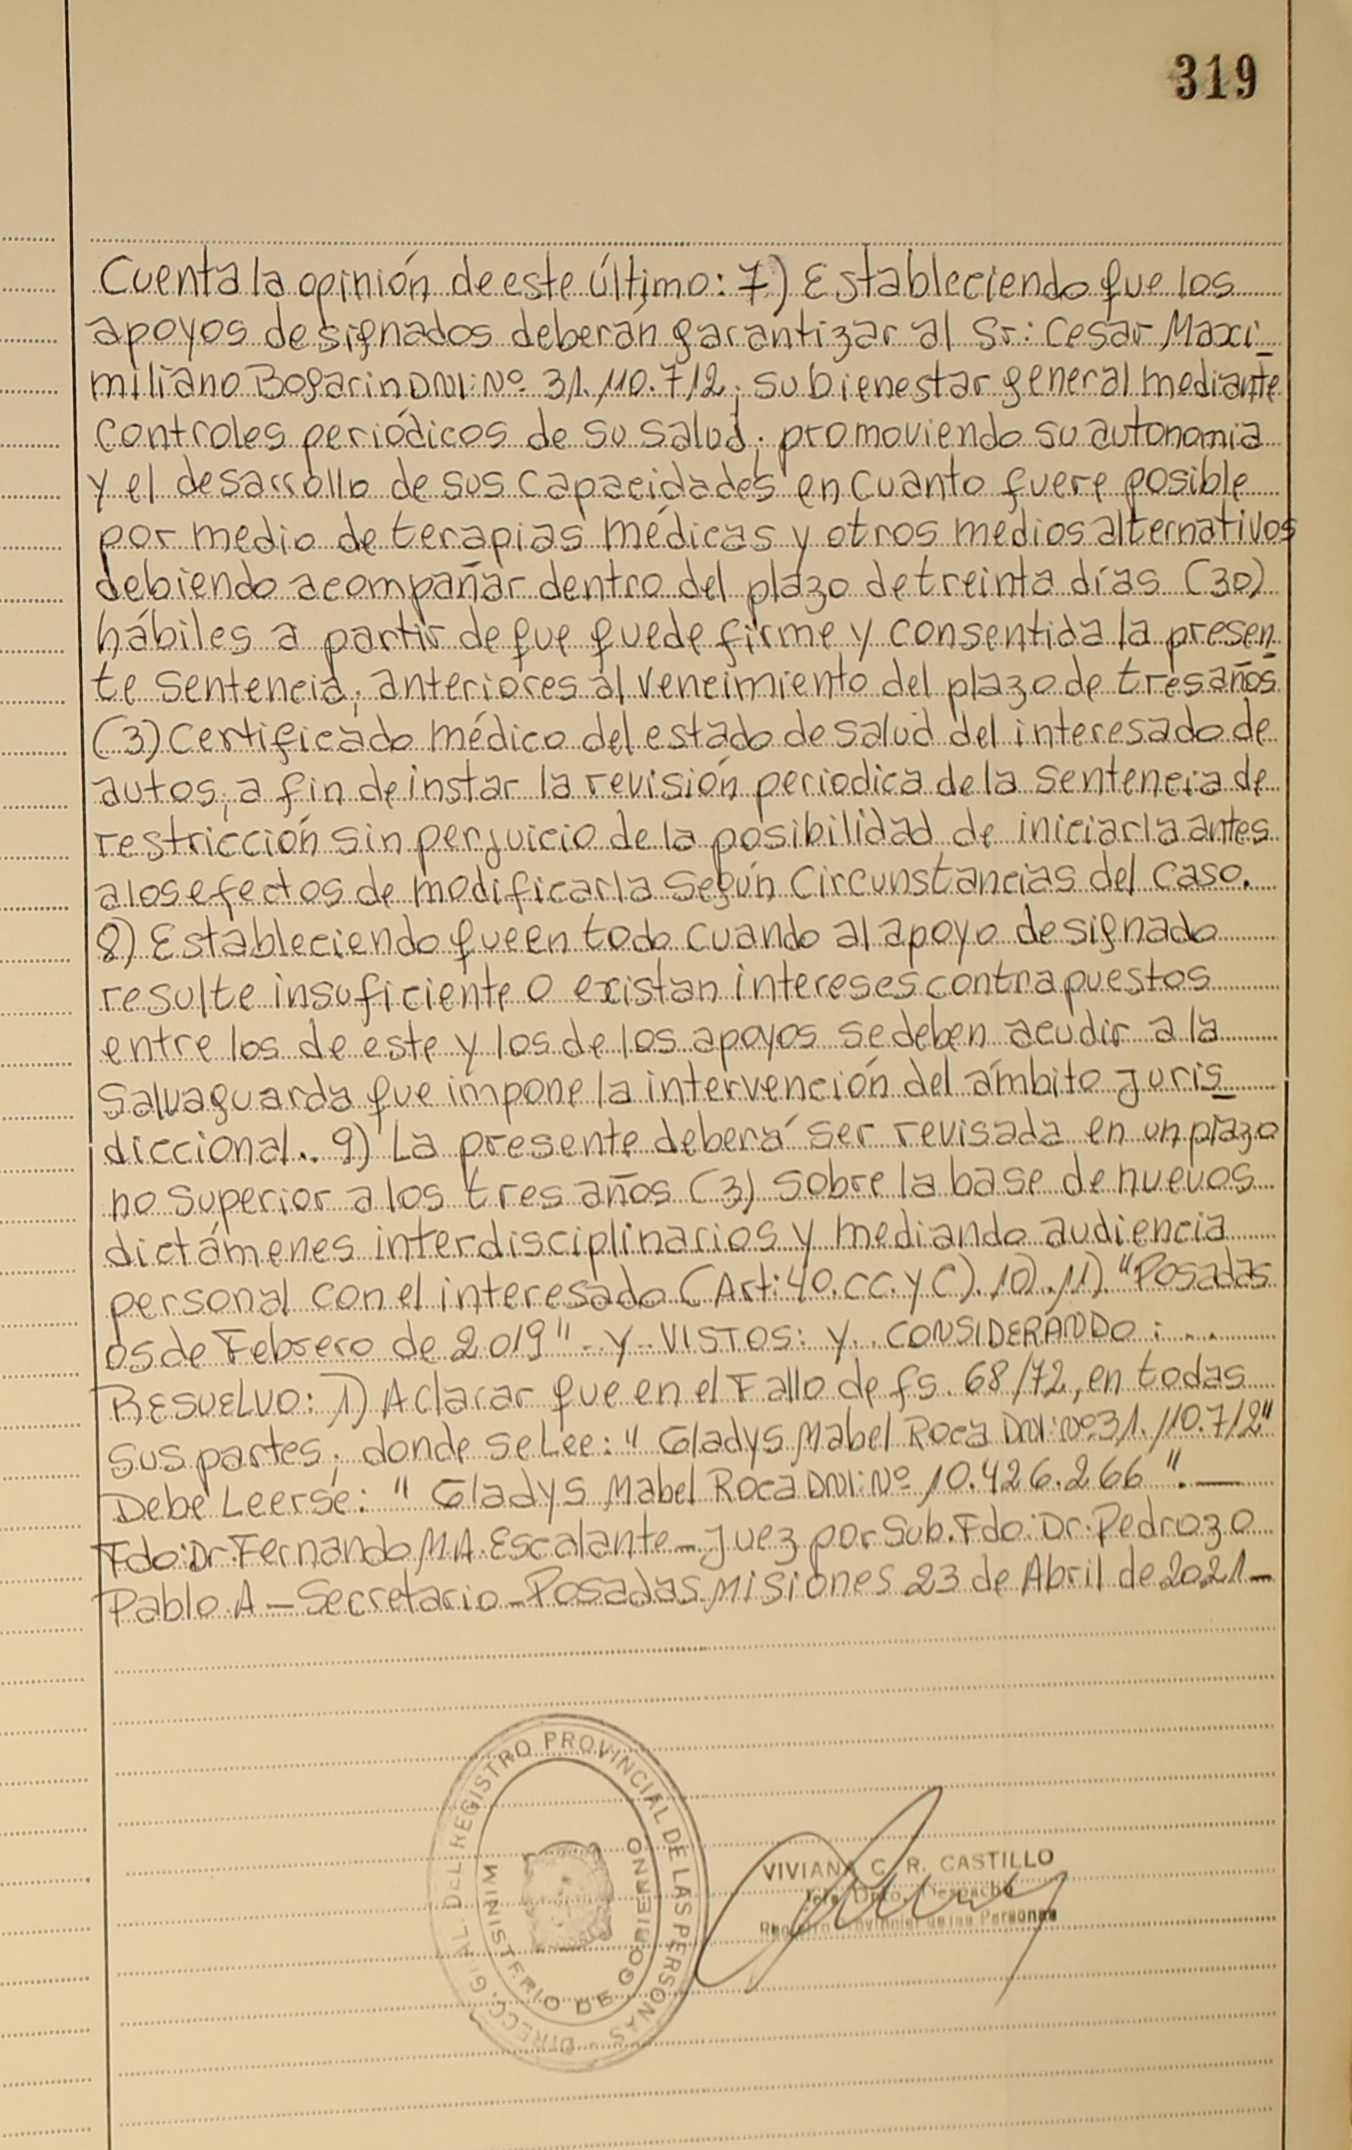 319
Cuenta la opinión de este último: 7) Estableciendo que los
apoyos designados deberán garantizar al Sr: Cesar Maxi_
miliano Bogarin DNI: Nº 31.110.712; su bienestar general mediante
controles periódicos de su salud; promoviendo su autonomia
y el desarrollo de sus capacidades en cuanto fuere posible
por medio de terapias médicas y otros medios alternativos
debiendo acompañar dentro del plazo de treinta días (30)
hábiles a partir de que quede firme y consentida la presen_
te Sentencia; anteriores al vencimiento del plazo de tres años
(3) Certificado médico del estado de salud del interesado de
autos; a fin de instar la revisión periodica de la sentencia de
restricción sin perjuicio de la posibilidad de iniciarla antes
a los efectos de modificarla según circunstancias del caso.
8) Estableciendo que en todo cuando al apoyo designado
resulte insuficiente o existan intereses contrapuestos
entre los de este y los de los apoyos se deben acudir a la
Salvaguarda que impone la intervención del ámbito juris_
diccional.. 9) La presente deberá ser revisada en un plazo
no superior a los tres años (3) sobre la base de nuevos
dictámenes interdisciplinarios y mediando audiencia
personal con el interesado (Art: 40. CC. y C). 10). 11). "Posadas
05 de Febrero de 2019" - y - VISTOS: y.. CONSIDERANDO: ...
RESUELVO: 1) Aclarar que en el Fallo de fs. 68/72, en todas
sus partes; donde se Lee: " Gladys Mabel Roca DNI: Nº 31.110.712"
Debe Leerse: " Gladys Mabel Roca DNI: Nº 10.426.266 ". —
Fdo: Dr. Fernando M.A. Escalante - Juez por Sub. Fdo: Dr. Pedrozo
Pablo. A - Secretario - Posadas Misiones 23 de Abril de 2021 -
DIRECC. GRAL. DEL REGISTRO PROVINCIAL DE LAS PERSONAS -
MINISTERIO DE GOBIERNO
VIVIANA C. R. CASTILLO
Jefa Dpto. Despacho
Registro Provincial de las Personas